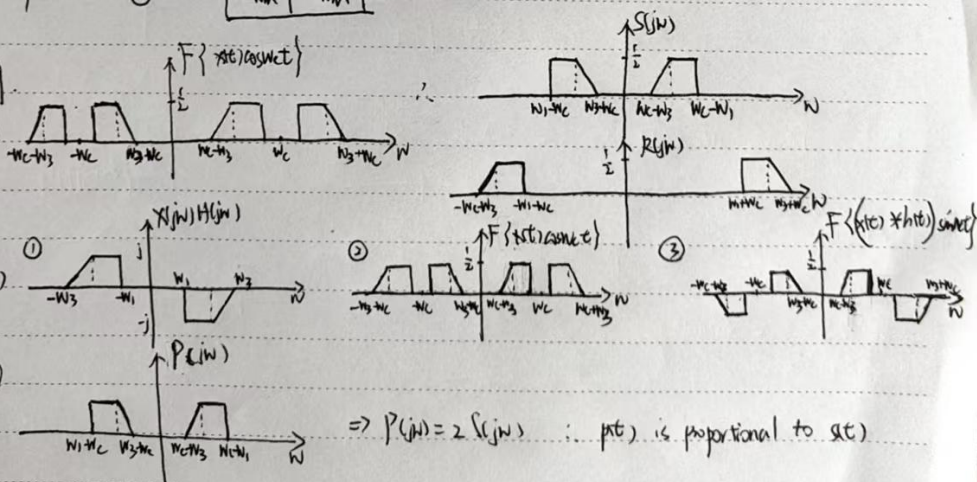 F{x(t)coswct}
1/2
-wc-w3 -wc w3-wc wc-w3 wc w3+wc w
∴
S(jw)
1/2
w1-wc w3-wc wc-w3 wc-w1 w
R(jw)
1/2
-wc-w3 -w1-wc w1+wc w3+wc w
① X(jw)H(jw)
j
-w3 -w1 w1 w3 w
-j
② F{x(t)coswct}
1/2
-wc wc-w3 wc wc+w3 w
③ F{(x(t)*h(t))sinwct}
1/2
-wc w3-wc wc-w3 wc w3+wc w
P(jw)
w1-wc w3-wc wc-w3 wc-w1 w
=> P(jw)=2S(jw) ∴ p(t) is proportional to s(t)